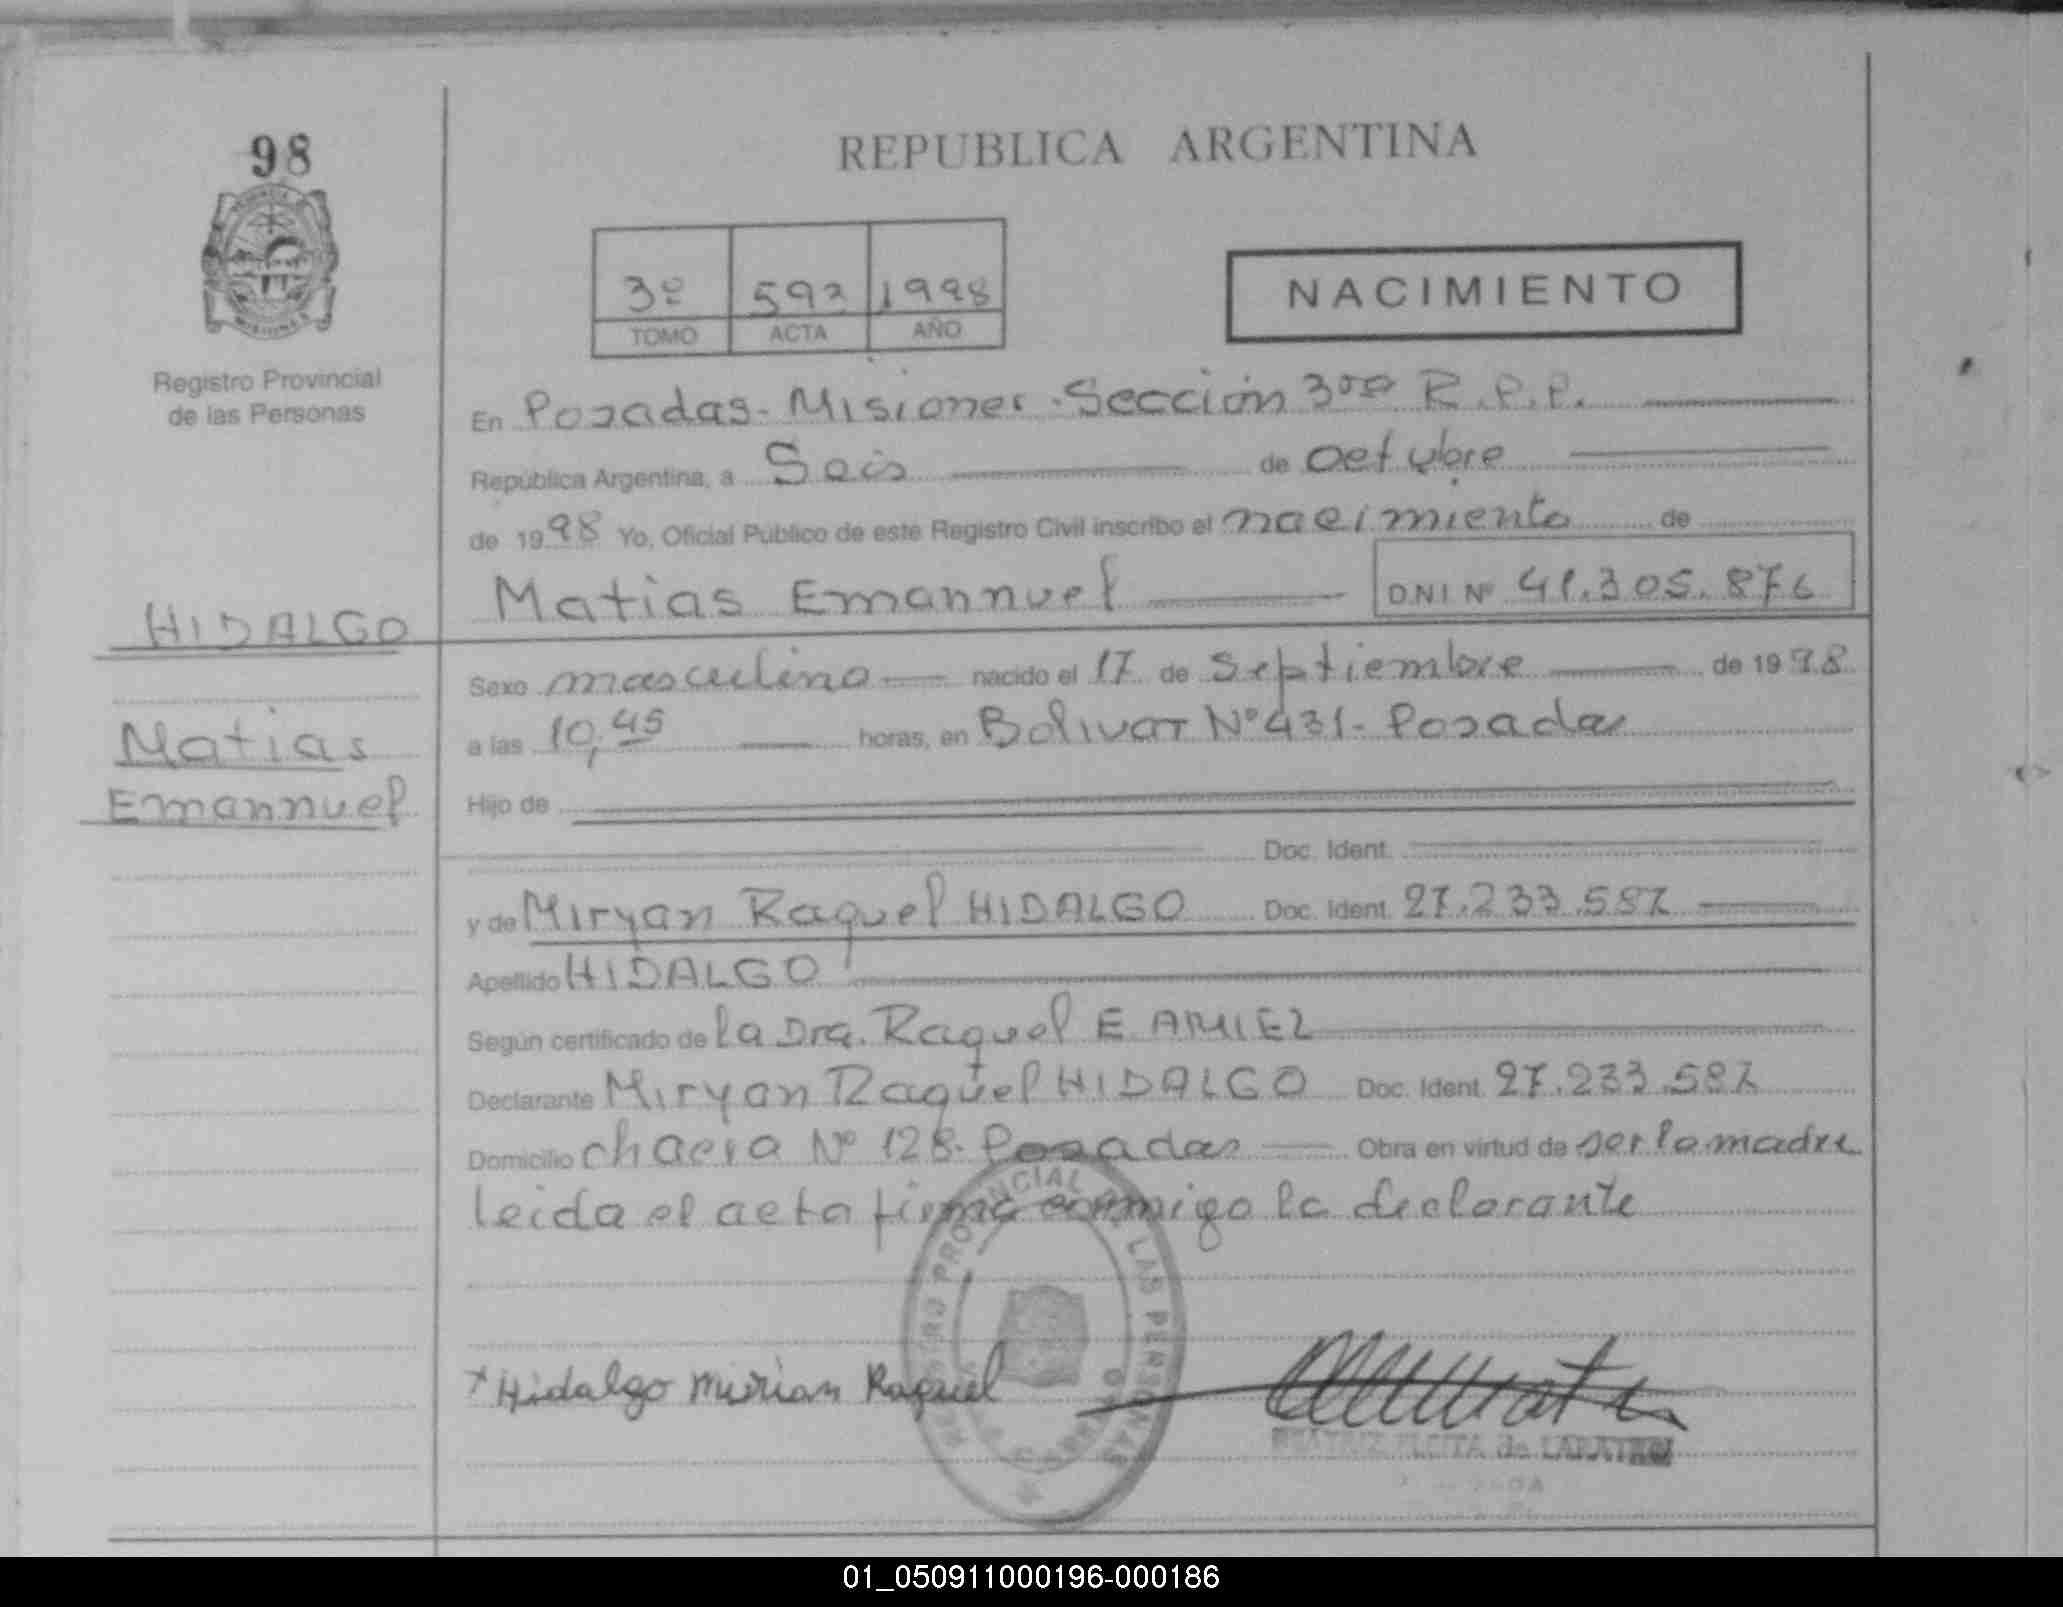 98
REPUBLICA ARGENTINA
3º 592 1998
TOMO ACTA AÑO
NACIMIENTO
Registro Provincial
de las Personas
En Posadas - Misiones - Sección 3ra R.P.P.
República Argentina, a Seis de octubre
de 1998 Yo, Oficial Público de este Registro Civil inscribo el nacimiento de
Matias Emannuel DNI Nº 41.305.876
HIDALGO
Matias
Emannuel
Sexo masculino nacido el 17 de Septiembre de 1998
a las 10,45 horas, en Bolivar Nº 431 - Posadas
Hijo de
Doc. Ident.
y de Miryan Raquel HIDALGO Doc. Ident. 27.233.587
Apellido HIDALGO
Según certificado de la Dra. Raquel E
Declarante Miryan Raquel HIDALGO Doc. Ident. 27.233.587
Domicilio chacra Nº 128 - Posadas Obra en virtud de ser la madre
leida el acta firma conmigo la declarante
PROVINCIAL DE LAS PERSONAS
x Hidalgo Mirian Raquel
BEATRIZ FLEITA de
01_050911000196-000186